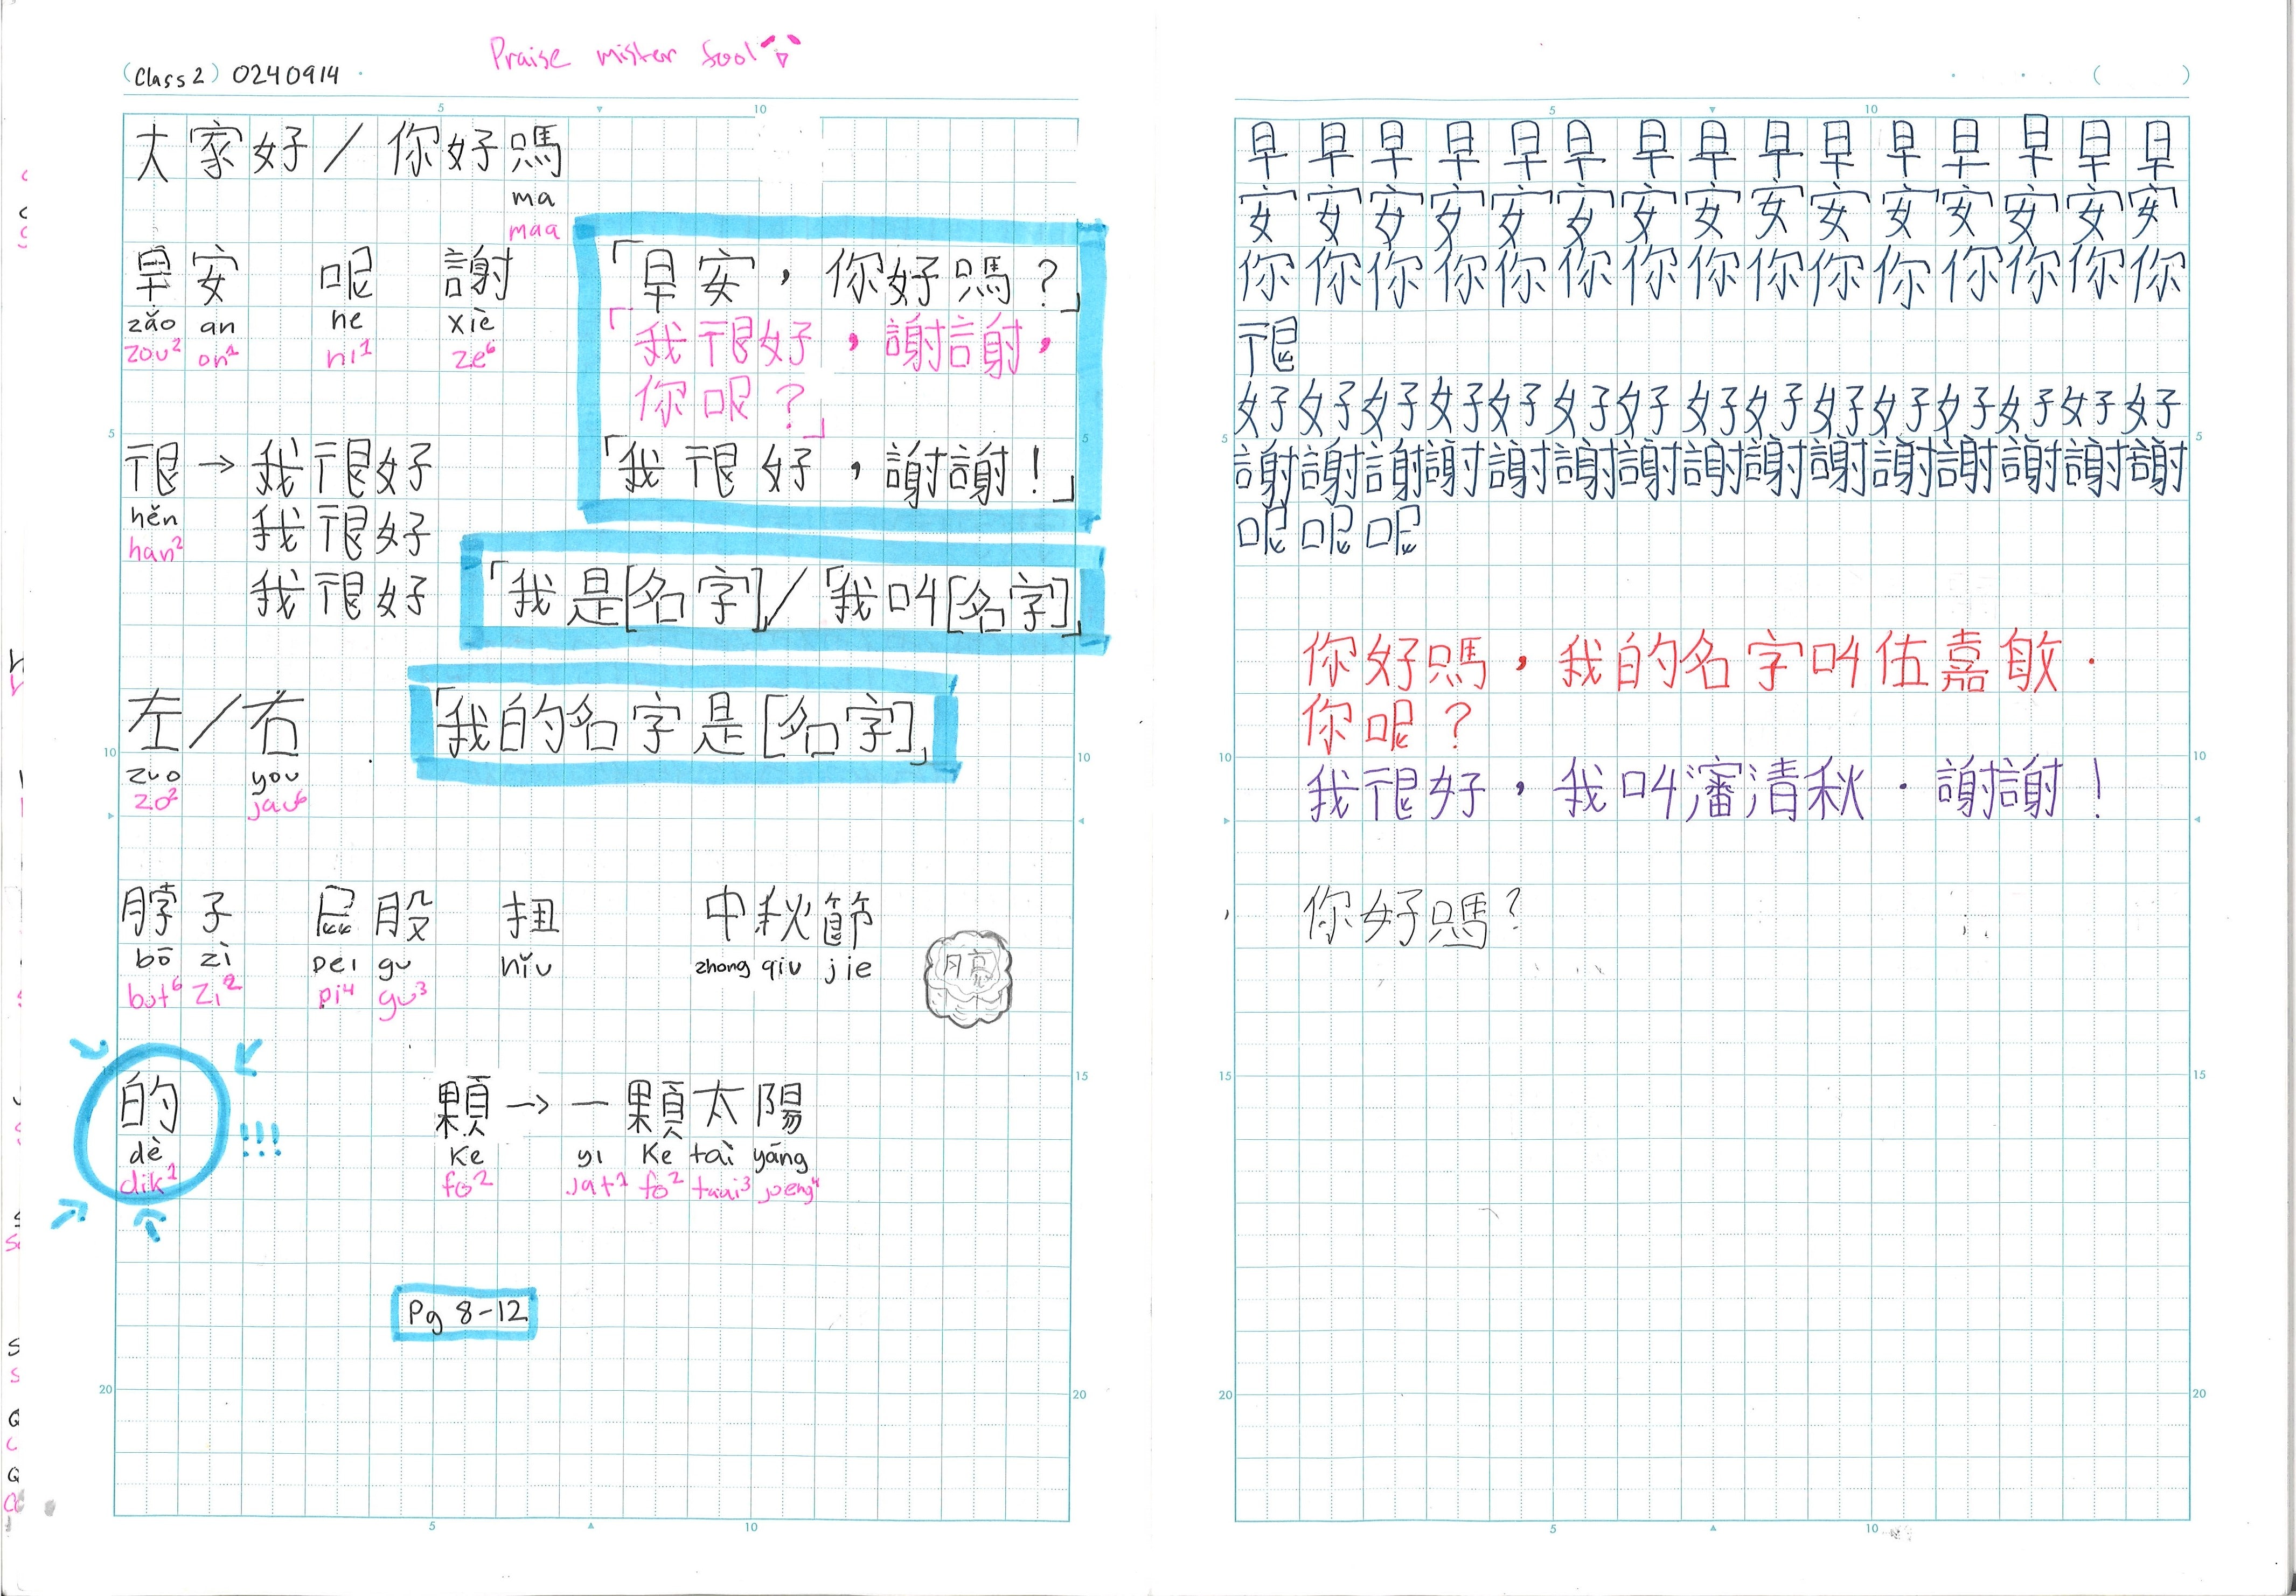 (Class 2) 0240914
Praise mister fool
大家好／你好嗎
ma
maa
早安 呢 謝
zǎo an ne xiè
zou² on¹ ni¹ ze⁶
「早安，你好嗎？」
「我很好，謝謝，
你呢？」
「我很好，謝謝！」
很→我很好
hěn
han²
我很好
我很好
「我是[名字]」／「我叫[名字]」
左／右
zuo you
zo² jau⁶
「我的名字是[名字]」
脖子 屁股 扭 中秋節
bō zì pei gu nǐu zhong qiu jie
but⁶ zi² pi⁴ gu³
月亮
的
dè
dik¹
!!!
顆→一顆太陽
ke yi ke tài yáng
fo² jat¹ fo² taai³ joeng⁴
Pg 8-12
早早早早早早早早早早早早早早早
安安安安安安安安安安安安安安安
你你你你你你你你你你你你你你你
很
好好好好好好好好好好好好好好好
謝謝謝謝謝謝謝謝謝謝謝謝謝謝謝
呢呢呢
你好嗎，我的名字叫佐嘉敏．
你呢？
我很好，我叫瀋清秋．謝謝！
你好嗎？